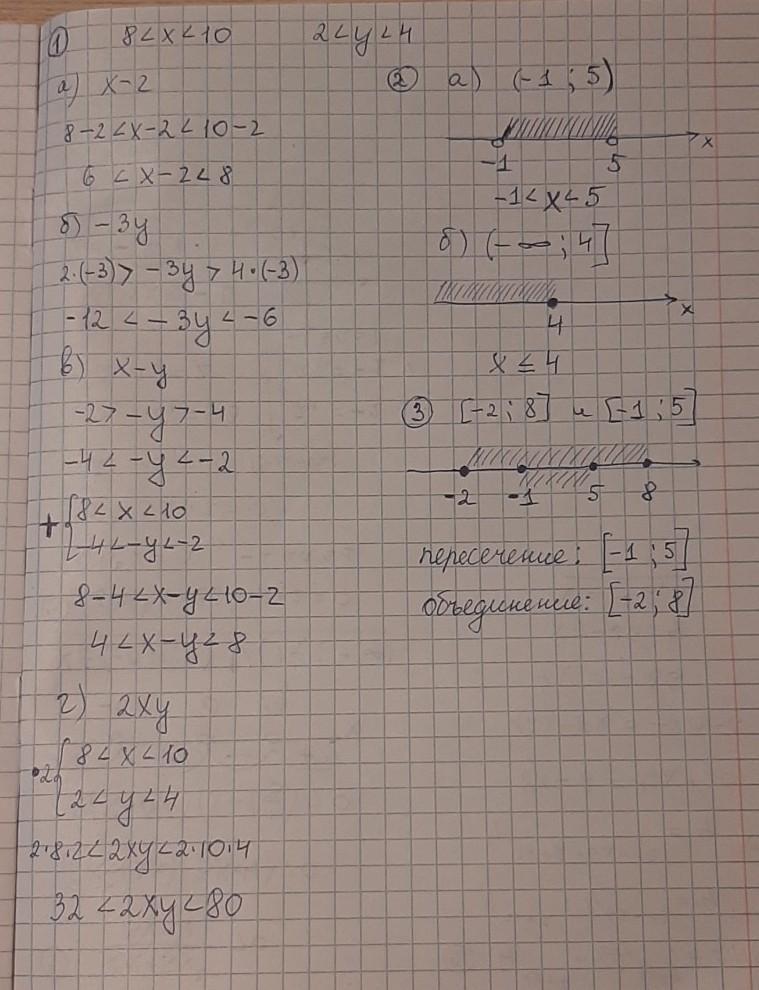 ① 8<x<10 2<y<4
а) x-2
8-2<x-2<10-2
6<x-2<8
б) -3y
2·(-3)>-3y>4·(-3)
-12<-3y<-6
в) x-y
-2>-y>-4
-4<-y<-2
+{8<x<10
-4<-y<-2
8-4<x-y<10-2
4<x-y<8
г) 2xy
·2{8<x<10
2<y<4
2·8·2<2xy<2·10·4
32<2xy<80
② а) (-1;5)
x
-1 5
-1<x<5
б) (-∞;4]
x
4
x≤4
③ [-2;8] и [-1;5]
-2 -1 5 8
пересечение: [-1;5]
объединение: [-2;8]